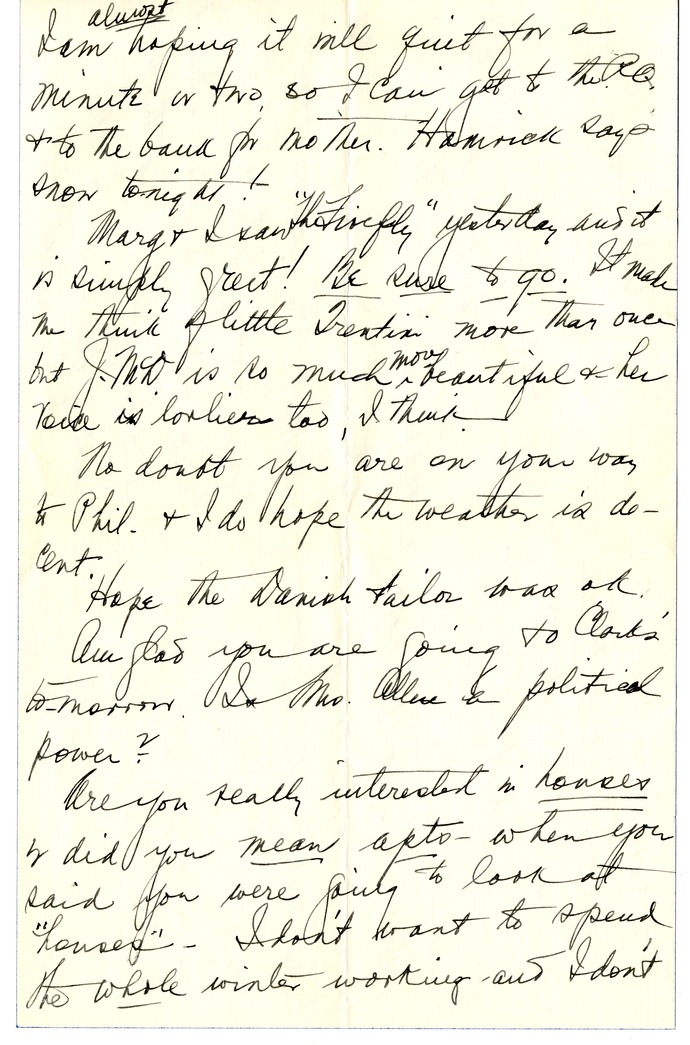 almost
I am hoping it will quiet for a
minute or two, so I can get to the P.O.
& to the bank for mother. Hamrick says
snow tonight!
Marg & I saw "The Firefly" yesterday and it
is simply great! Be sure to go. It made
me think of little Trentini more than once
but J. McD is so much more beautiful & her
voice is lovlier too, I think
No doubt you are on your way
to Phil. & I do hope the weather is de-
cent.
Hope the Danish tailor was ok.
Am glad you are going to Clark's
to-morrow. Is Mrs. Allen a political
power?
Are you really interested in houses
or did you mean apts- when you
said you were going to look at
"houses" - I don't want to spend
the whole winter working and I don't